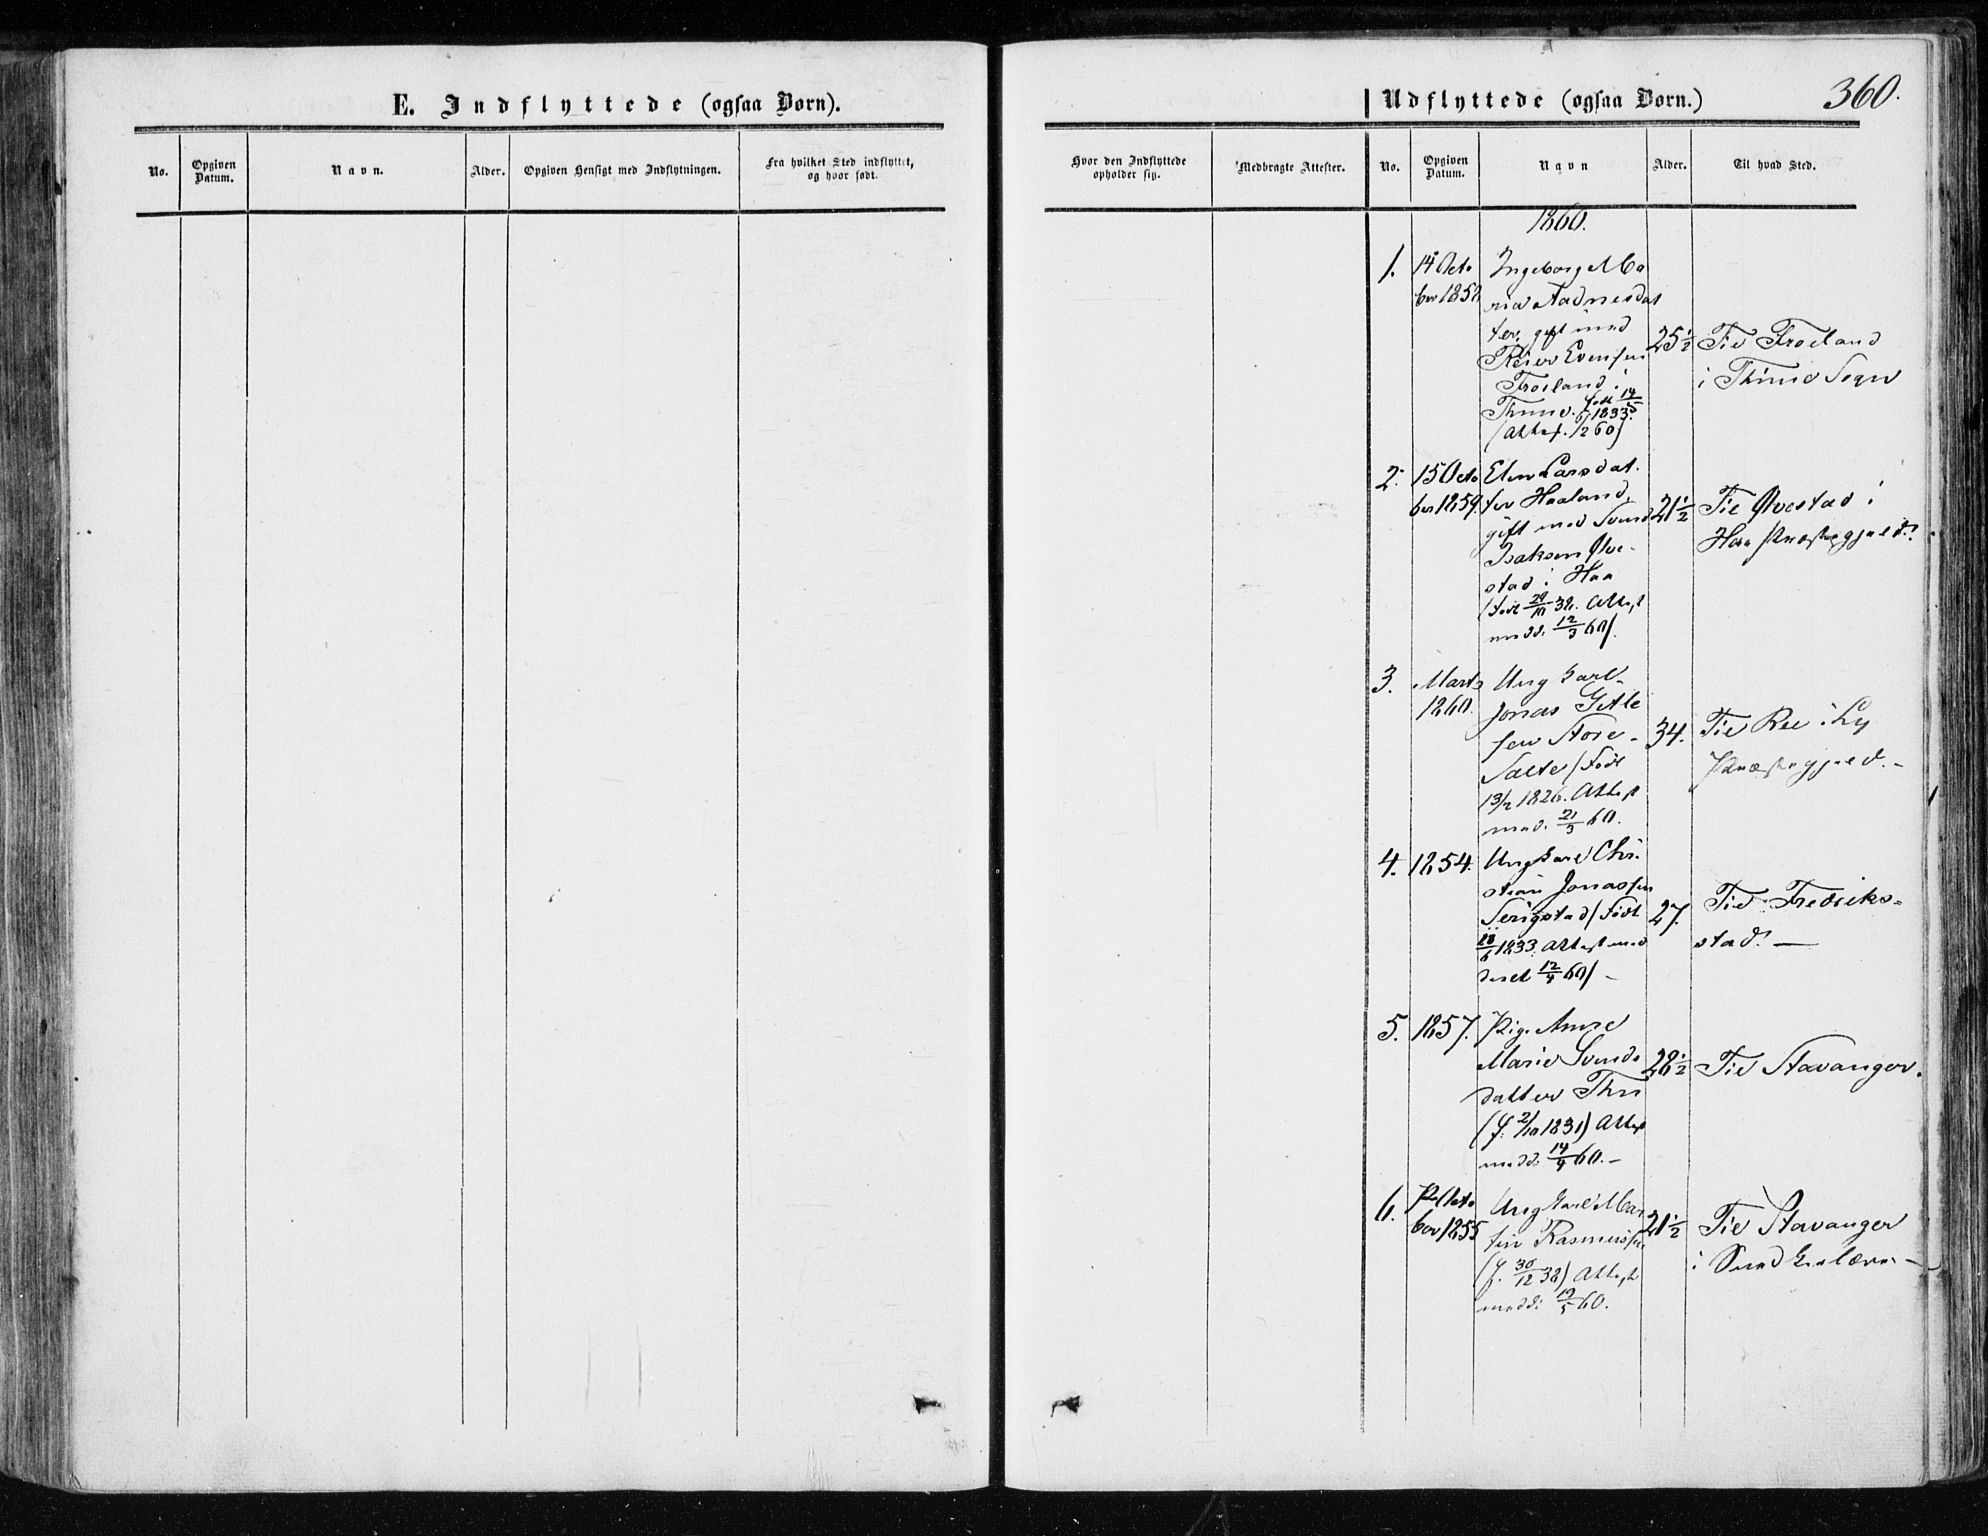 E. Indflyttede (ogsaa Børn).
No.
Opgiven
Datum.
Navn.
Alder.
Opgiven Hensigt med Indflytningen.
Fra hvilket Sted indflyttet,
og hvor født.
Udflyttede (ogsaa Børn.)
360.
Hvor den Indflyttede
opholder sig.
Medbragte Attester.
No.
Opgiven
Datum.
Navn
Alder.
Til hvad Sted.
1860.
1.
14 Octo
ber 185
Ingeborg Ma
ria Aadnesdat
ter, gift med
Reier Evensen
Froiland i
Thime. født 14/5
1833.
(Attest. 1260)
25½
Til Froiland
i Thime Sogn
2.
15 Octo
ber 1859.
Elen Larsdat.
ter Haaland,
gift med Svend
Isaksen Olve-
stad i Haa
(født 29/10 38. Attest
medd. 12/3 60).
21½
Til Olvestad i
Haa Præstegjeld.
3.
Marts
1860.
Ung karl
Jonas Gitle
sen Store-
Salte (Født
13/2 1826. Attest
med. 21/3 60.
34.
Til Ree i Ly
Præstegjeld.-
4.
1854.
Ungkarl Chri
stian Jonassen
Serigstad (Født
18/6 1833. Attest med
delet 12/4 60) -
27.
Til Fredriks-
stad. -
5.
1857.
Pige Anne
Marie Svends
datter Thu
(f. 2/10 1831) Attest
medd. 14/4 60. -
28½
Til Stavanger.
6.
Octo
ber 1855
Ungkarl Mar
tin Rasmussen
(f. 30/12 38) Attest
medd: 19/5 60.
21½
Til Stavanger
i Smedkelære -